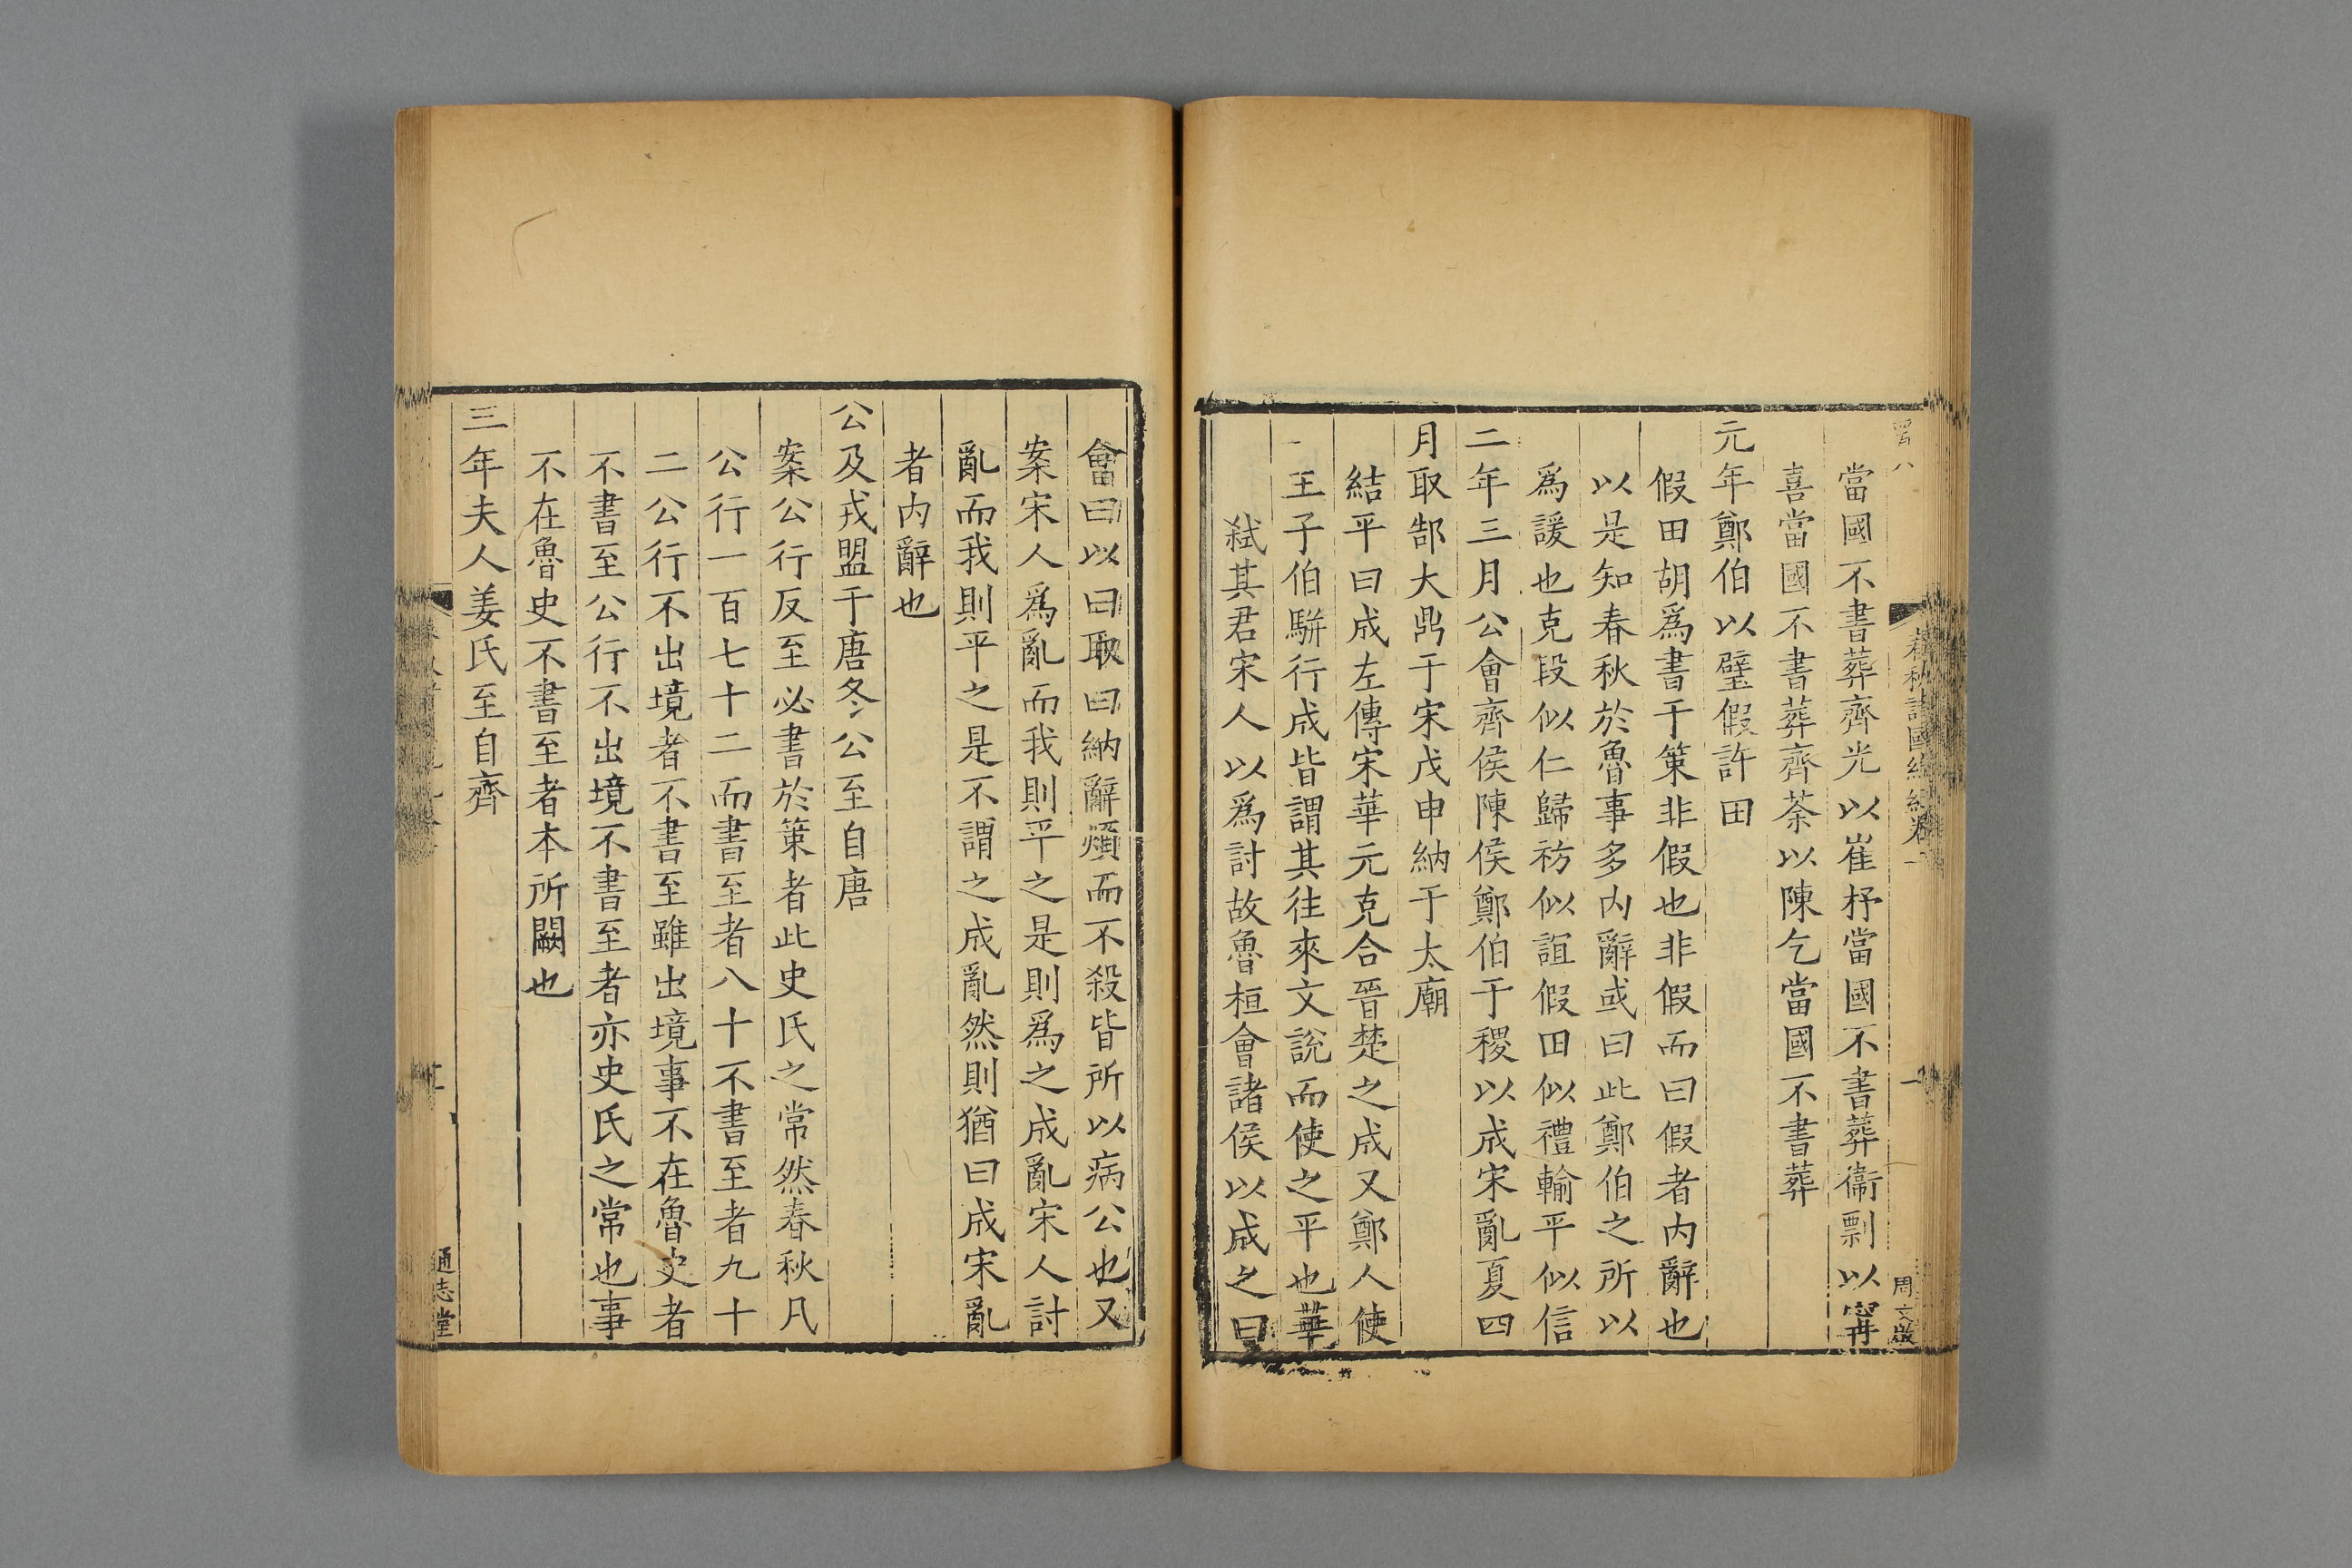 當國不書葬齊光以崔杼當國不書葬衞剽以甯
喜當國不書葬齊荼以陳乞當國不書葬
元年鄭伯以璧假許田
假田胡爲書于策非假也非假而曰假者内辭也
以是知春秋於魯事多内辭或曰此鄭伯之所以
爲諼也克段似仁歸祊似誼假田似禮輸平似信
二年三月公會齊侯陳侯鄭伯于稷以成宋亂夏四
月取郜大鼎于宋戊申納于太廟
結平曰成左傳宋華元克合晉楚之成又鄭人使
王子伯駢行成皆謂其往來文說而使之平也華
弑其君宋人以爲討故魯桓會諸侯以成之曰
會曰以曰取曰納辭煩而不殺皆所以病公也又
案宋人爲亂而我則平之是則爲之成亂宋人討
亂而我則平之是不謂之成亂然則猶曰成宋亂
者内辭也
公及戎盟于唐冬公至自唐
案公行反至必書於策者此史氏之常然春秋凡
公行一百七十二而書至者八十不書至者九十
二公行不出境者不書至雖出境事不在魯史者
不書至公行不出境不書至者亦史氏之常也事
不在魯史不書至者本所闕也
三年夫人姜氏至自齊
通志堂